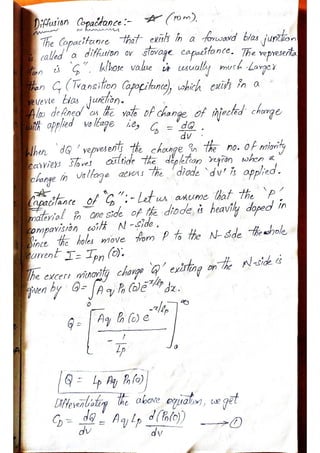 Diffusion Capacitance:- ☆ (10m).
The Capacitance that exists in a forward bias junction
is called a diffusion or storage capacitance. The representa
tion is C_D". Whose value is usually much Larger
than C_T (Transition Capacitance), which exists in a
reverse bias junction.
Also defined as the rate of change of injected charge
with applied voltage i.e, C_D = dQ/dv.
When 'dQ' represents the change in the no. of minority
carriers stores outside the depletion region when a
change in voltage across the diode 'dv' is applied.
☆
Capacitance of C_D":- Let us assume that the 'P'
material in one side of the diode is heavily doped in
comparision with N-side.
Since the holes move from P to the N-side the hole
current I = Ipn(0).
The excess minority charge 'Q' existing on the N-side is
given by Q = ∫₀ Aq Pn(0) e^(-x/Lp) dx.
Q = [ Aq Pn(0) e^(-x/Lp) / (-1/Lp) ]₀^∞
Q = Lp Aq Pn(0)
Differentiating the above equation, we get
C_D = dQ/dv = Aq Lp d(Pn(0))/dv → ①